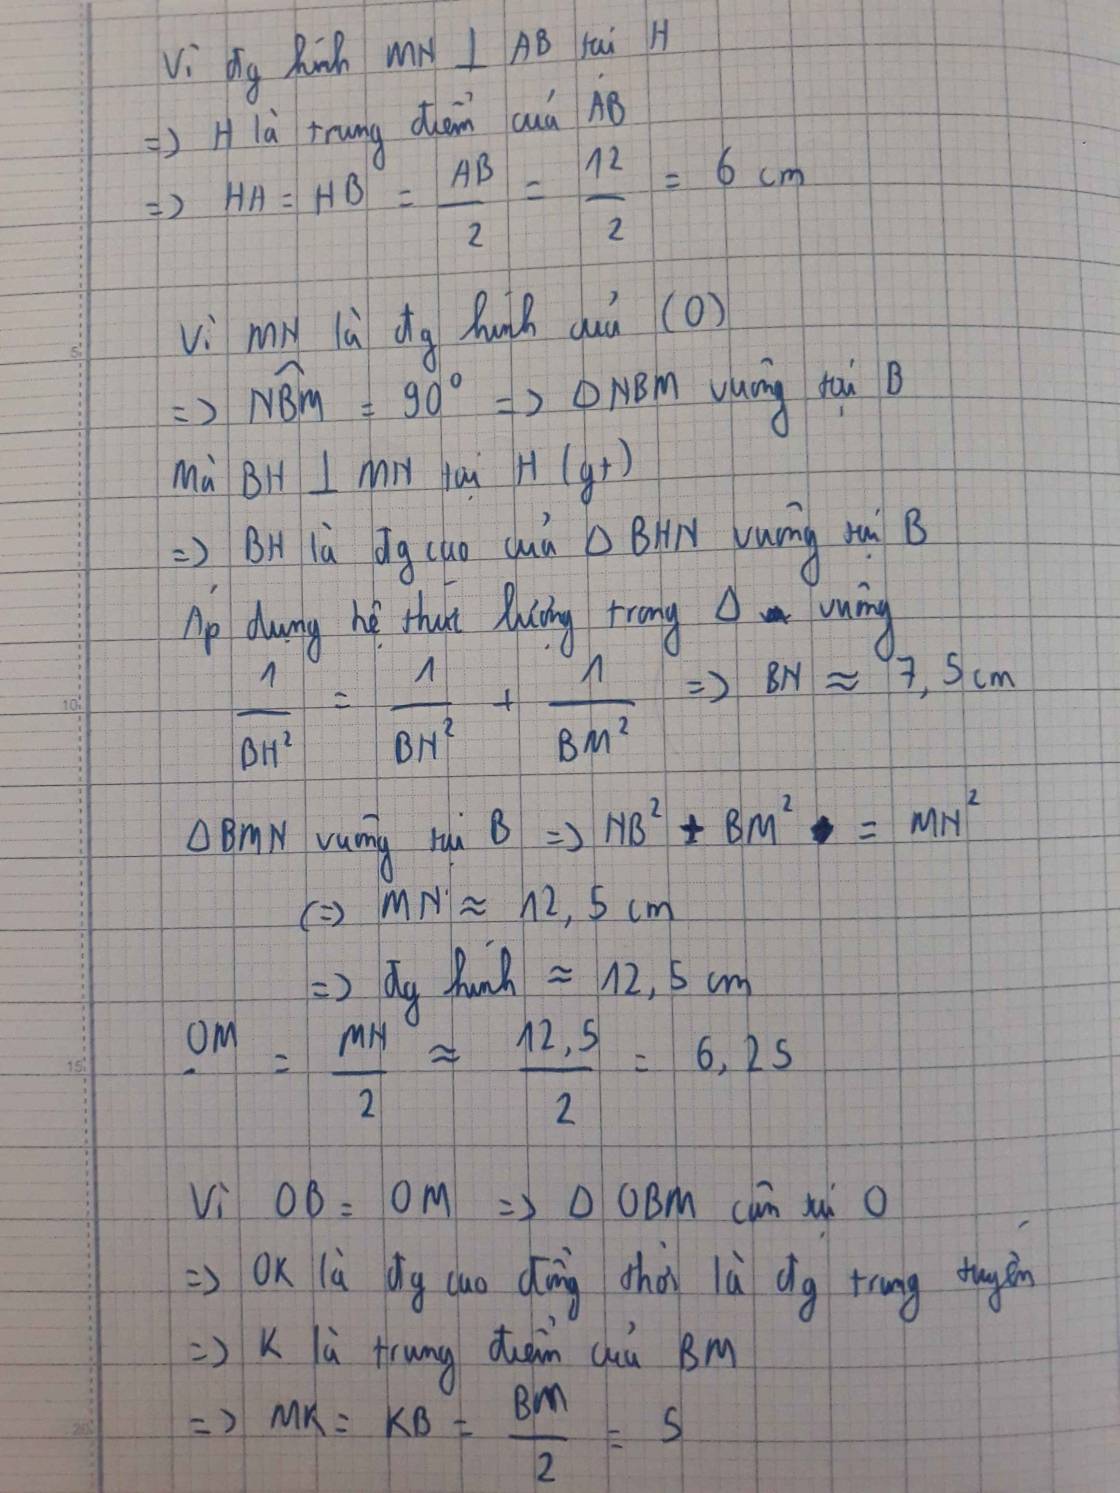 Vì đg kính MN ⊥ AB tại H
=> H là trung điểm của AB
=> HA = HB = AB/2 = 12/2 = 6 cm
Vì MN là đg kính của (O)
=> NB̂M = 90° => Δ NBM vuông tại B
Mà BH ⊥ MN tại H (gt)
=> BH là đg cao của Δ BHN vuông tại B
Áp dụng hệ thức lượng trong Δ vuông
1/BH² = 1/BN² + 1/BM² => BN ≈ 7,5 cm
Δ BMN vuông tại B => NB² + BM² = MN²
(=> MN ≈ 12,5 cm
=> đg kính ≈ 12,5 cm
OM = MN/2 ≈ 12,5/2 = 6,25
Vì OB = OM => Δ OBM cân tại O
=> OK là đg cao đồng thời là đg trung tuyến
=> K là trung điểm của BM
=> MK = KB = BM/2 = 5